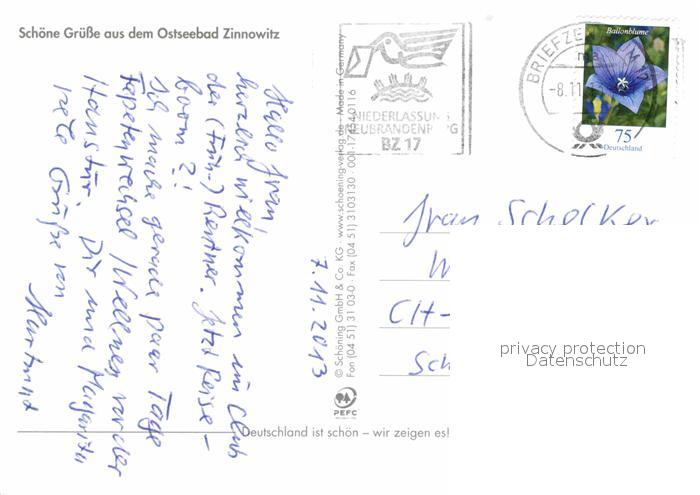 Schöne Grüße aus dem Ostseebad Zinnowitz
Hallo Jran!
herzlich willkommen im Club
der (Früh-) Rentner. Jetzt Reise-
boom?!
Ich mache gerade paar Tage
Tapetenwechsel / Wellness vor der
Haustür. Dir und Margarith
nette Grüße von
Hartmut
7.11.2013
© Schöning GmbH & Co. KG · www.schoening-verlag.de · Made in Germany
Fon (04 51) 31 03-0 · Fax (04 51) 3103130 · 001-17454-0116
PEFC
Deutschland ist schön – wir zeigen es!
NIEDERLASSUNG
NEUBRANDENBURG
BZ 17
BRIEFZE
-8.11
Ballonblume
75
Deutschland
Jran Schocker
CH-
Sch
privacy protection
Datenschutz